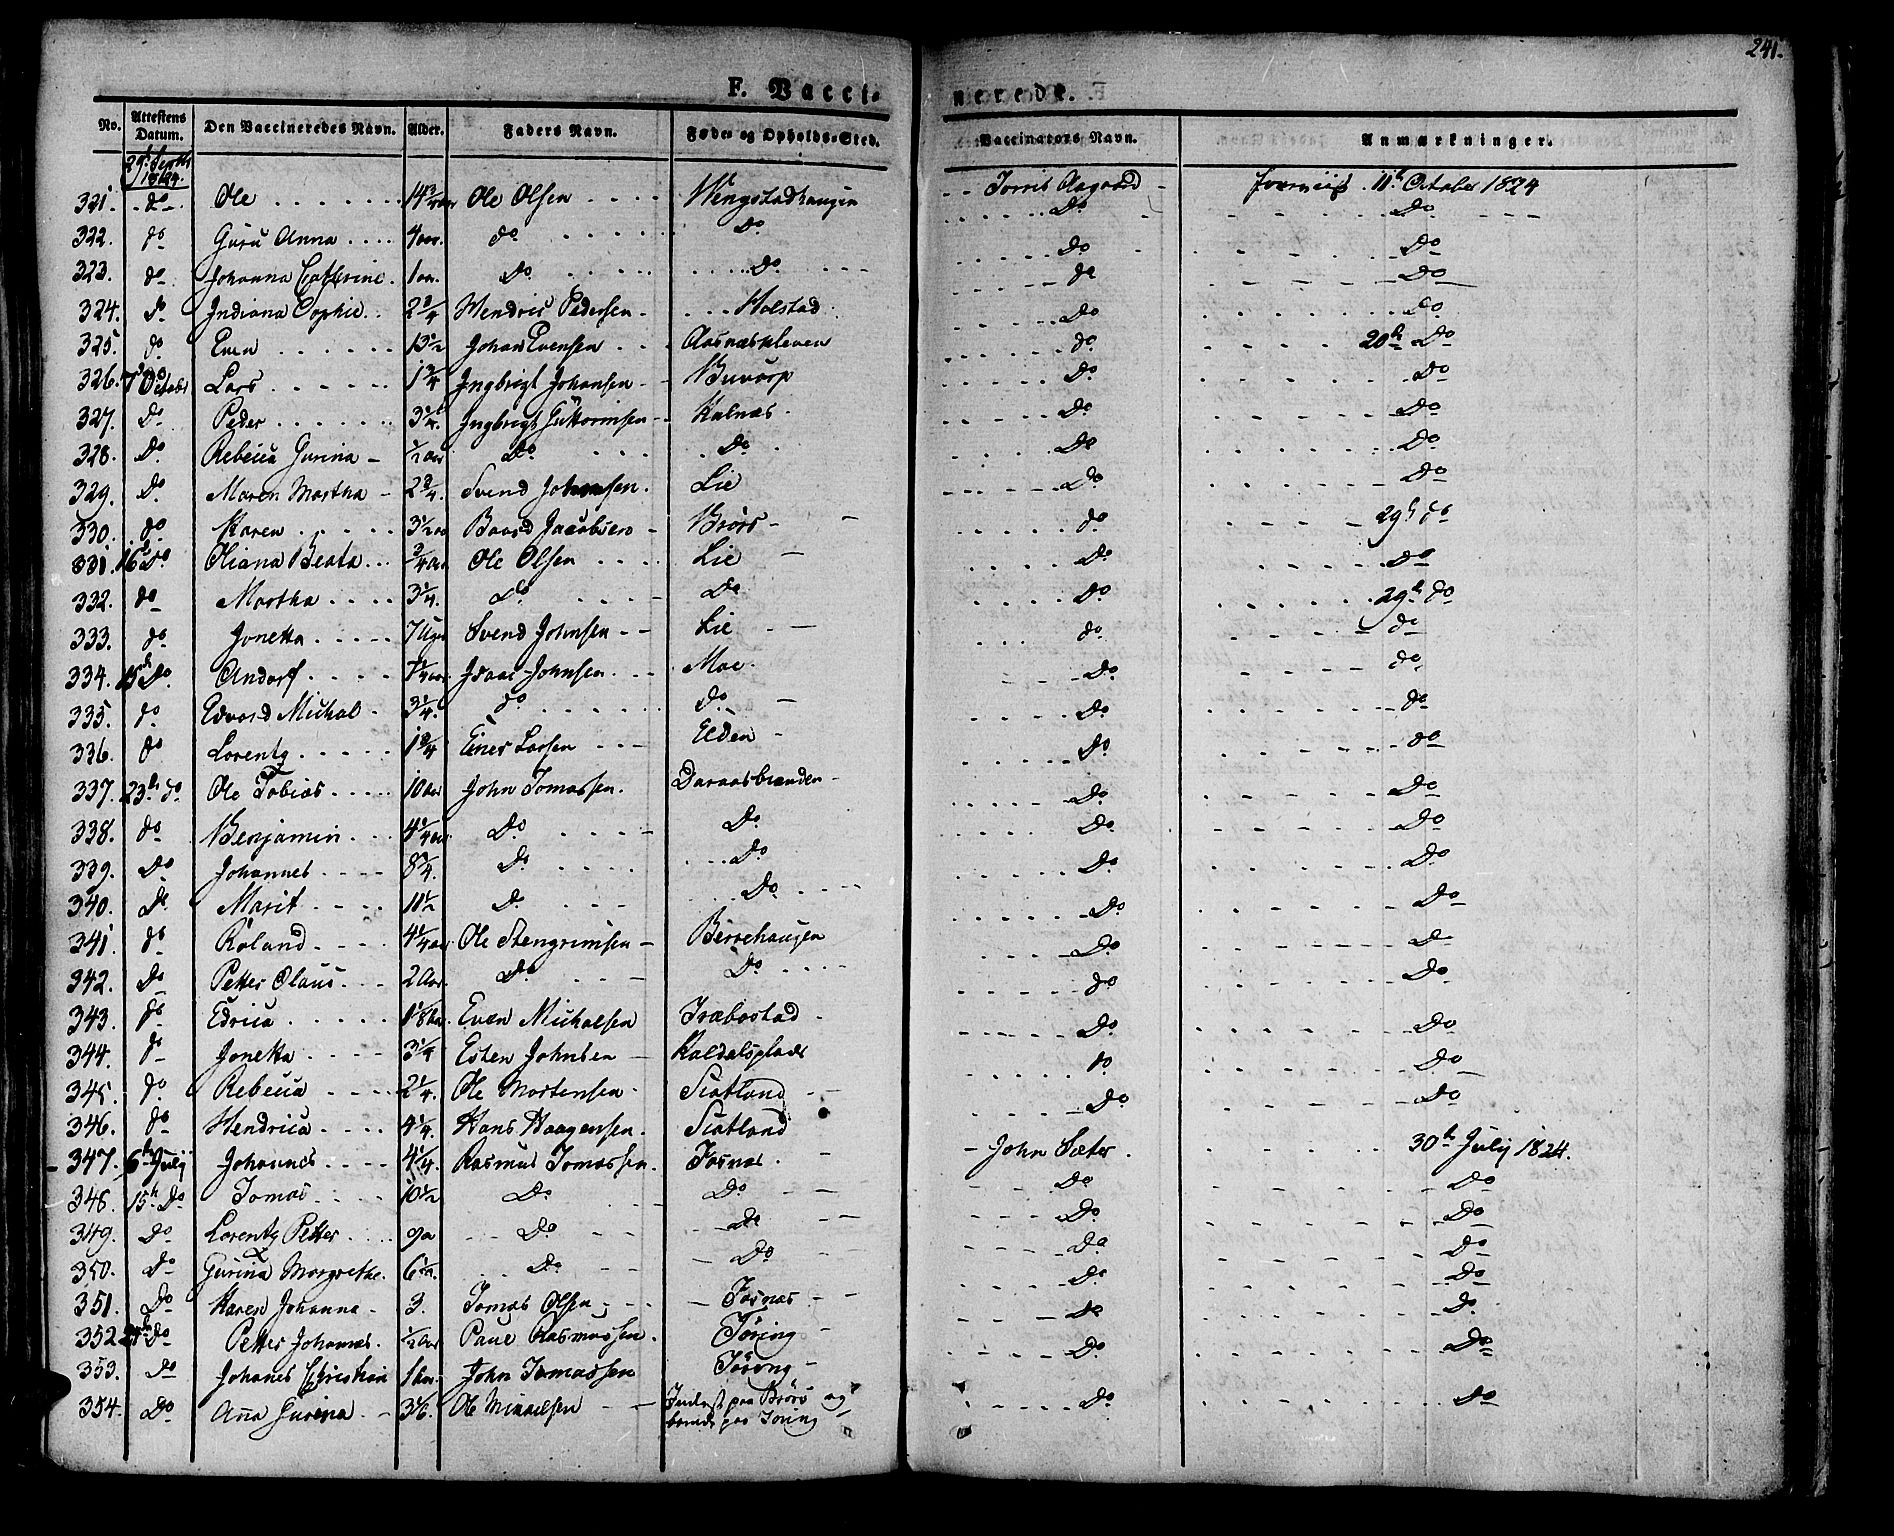 241.
F. Vacci-nerede.
No. Attestens Datum. Den Vaccineredes Navn. Alder. Faders Navn. Føde- og Opholds-Sted. Vaccinators Navn. Anmærkninger.
29 Septbr 1824
321. do Ole 14 3/4 aar Ole Olsen Wengstadhaugen Torris Aagaard 11te October 1824
322. do Guru Anna 4 aar. do Do Do Do
323. do Johanna Cathrine 1 aar. Do Do Do Do
324. do Indiana Sophie 2 3/4 Hendric Pedersen Holstad do Do
325. do Even 13 1/2 Johan Evensen Aasnæskleven Do Do
326. 7de October Lars 1 3/4 Ingbrigt Johansen Buvarp do 20de Do
327. Do Peder 3 1/4 Ingbrigt Guttormsen Kalnæs Do Do
328. Do Rebecca Gurina 1/2 aar Do Do Do Do
329. Do Maren Martha 2 3/4 Svend Johnsen Lie Do Do
330. do Karen 3 1/2 aar Baard Jacobsen Brørs Do Do
331. 16de Do Oliana Beata 3/4 aar Ole Olsen Lie do 29de do
332. do Martha 3 1/4 Do Do Do do
333. do Jonetta 7 Uger Svend Johnsen Lie Do 29de do
334. 15de Do Andorf 7 1/4 aar Isaac Johnsen Moe do do
335. do Edvard Michal 3 1/4 do do Do do
336. do Lorentz 1 3/4 Einer Larsen Elden Do do
337. 23de do Ole Tobias 10 aar John Tomassen Daraasbrænden Do do
338. do Benjamin 4 1/4 aar Do Do Do Do
339. Do Johannes 8 3/4 Do Do Do Do
340. Do Marit 11 1/2 Do Do Do Do
341. do Roland 4 1/4 aar Ole Stengrimsen Berrehaugen Do Do
342. Do Petter Claus 2 Aar Do Do Do Do
343. do Edrica 1 1/8 aar Even Michalsen Træbostad do Do
344. do Jonetta 3 1/4 Esten Johnsen Kaldalsplads Do Do
345. do Rebecca 2 1/4 Ole Mortensen Scotland do Do
346. do Hendrica 4 1/4 Hans Haagensen Scotland Do Do
347. 6te July Johannes 4 1/4 Rasmus Tomassen Fosnæs John Sæter 30te July 1824.
348. 15de Do Tomas 10 1/2 Do Do Do Do
349. Do Lorentz Petter 9 a Do Do Do Do
350. Do Gurina Margrethe 6 aar Do Do Do Do
351. Do Karen Johanna 3. Tomas Olsen Fosnæs Do Do
352. do Petter Johannes 1/2 aar Paul Rasmussen Tøring Do Do
353. Do Johanes Christian 1 aar John Tomassen Tøring Do Do
354. Do Aña Gurina 3 1/6 Ole Mikaelsen Inderst paa Brørs og boende paa Tøring Do Do